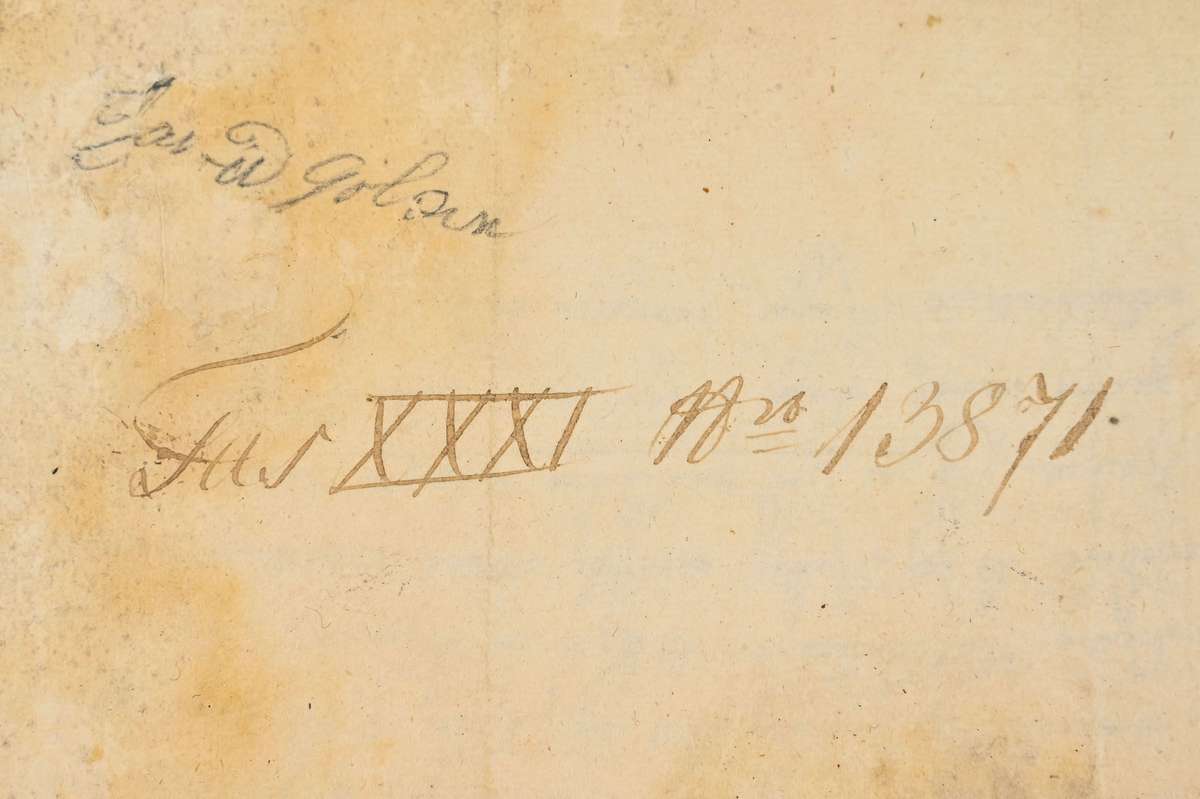 Jas W Golsen
Fas XXXI Nro 13871.